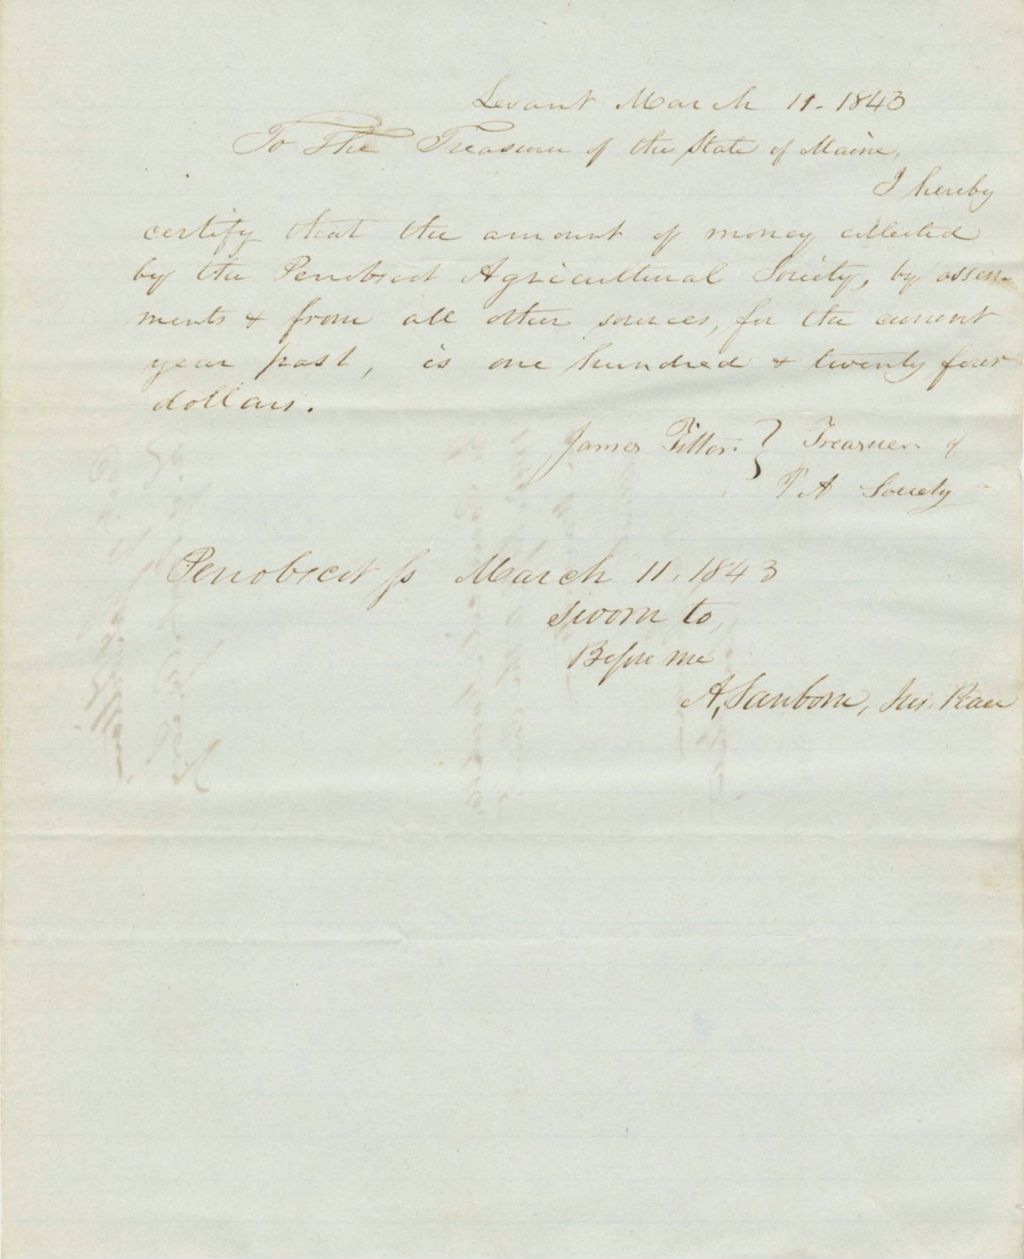 Levant March 11. 1843
To The Treasurer of the State of Maine,
I hereby
certify that the amount of money collected
by the Penobscot Agricultural Society, by assess-
ments & from all other sources, for the current
year past, is one hundred & twenty four
dollars.
James Tilton } Treasurer of
P A Society
Penobscot ss March 11. 1843
Sworn to,
Before me
A, Sanborn, Jus. Peace